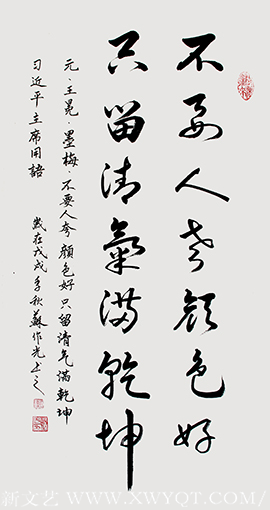 不要人夸颜色好
只留清氣满乾坤
元·王冕·墨梅·不要人夸顔色好只留清气满乾坤
习近平主席用語
岁在戊戌季秋蘇作光书之
新文艺 WWW.XWYQT.COM/